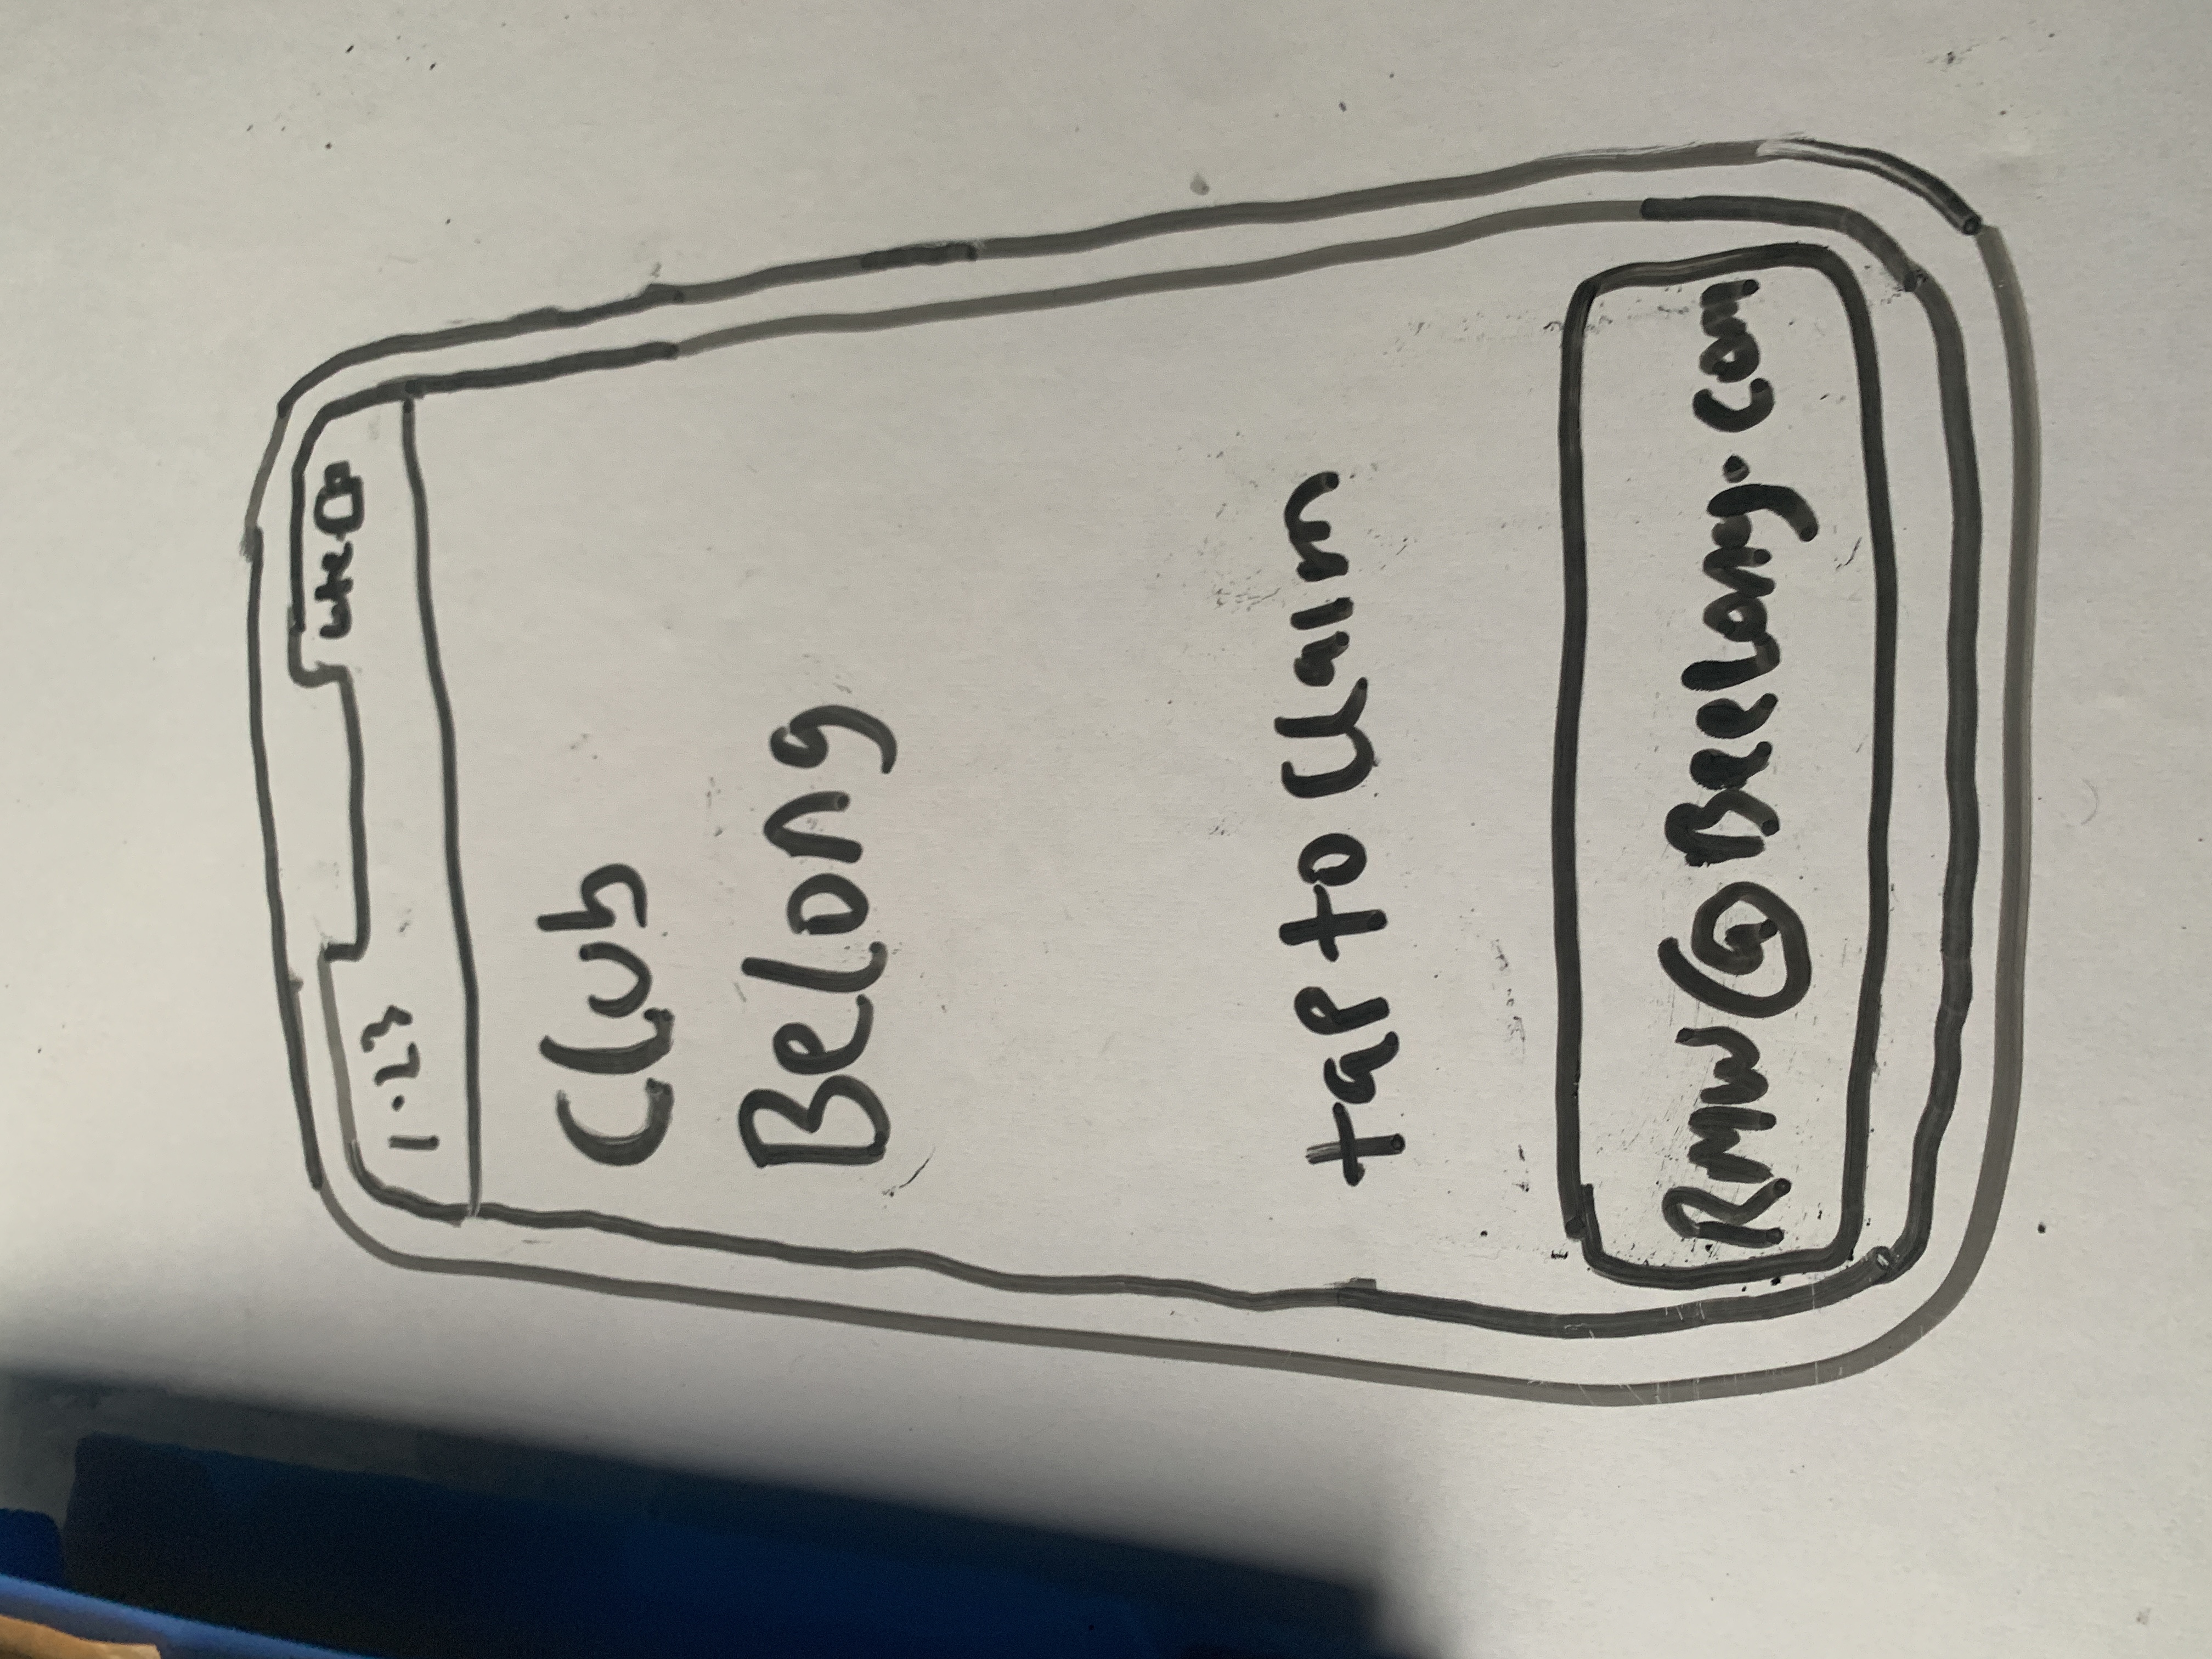 1.23 LTE
Club
Belong
tap to claim
RMW@Beelong.com